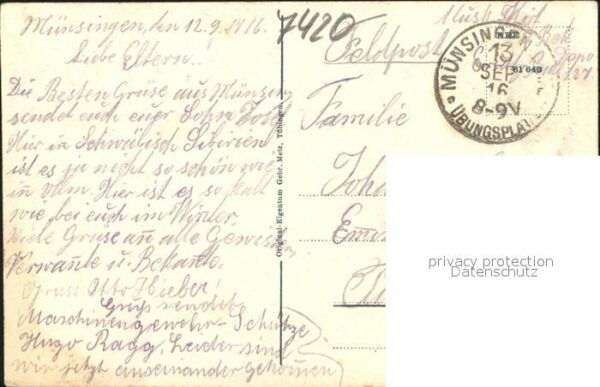 Münsingen, den 12.9.1916.
Liebe Eltern.
Die Besten Grüse aus Münsing
sendet euch euer Sohn Josef
Hier in Schwäbisch Sibirien
ist es ja nicht so schön wie
in Ulm. Hier ist es so kalt
wie bei euch im Winter.
Viele Grüse an alle Gewister
Verwante u. Bekante.
Gruss Otto Hieber!
Gruß sendet
Maschinengewehr-Schütze
Hugo Ragg. Leider sind
wir jetzt auseinander gekommen
7420
Original-Eigentum Gebr. Metz, Tübingen.
Feldpost
Familie
Joh
MÜNSINGEN
13
SEP
16
8-9V
ÜBUNGSPLAT
61 643
privacy protection
Datenschutz